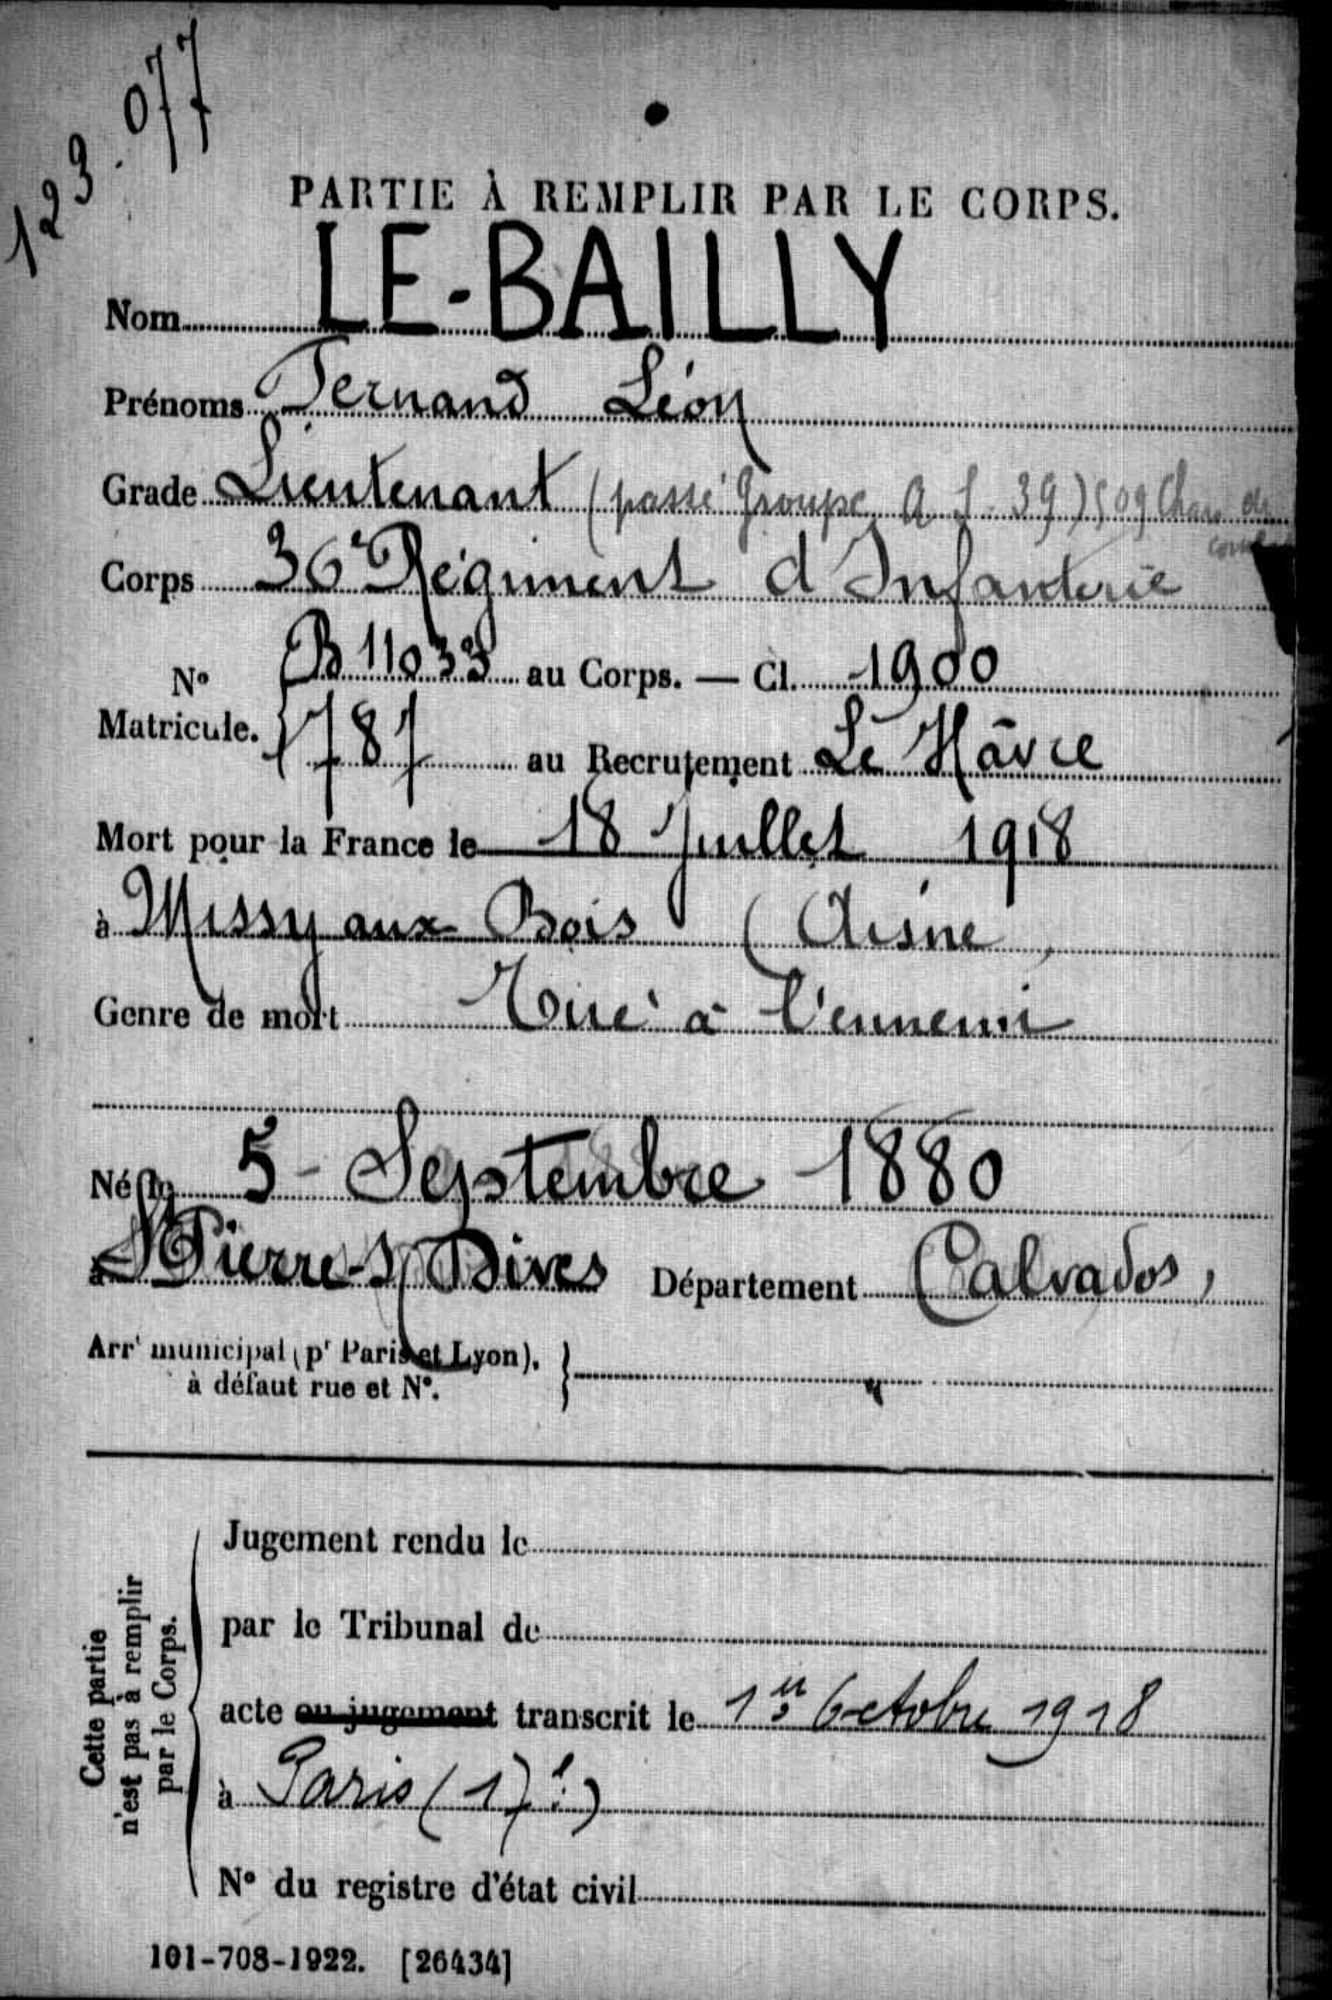 123.077
PARTIE À REMPLIR PAR LE CORPS.
Nom LE-BAILLY
Prénoms Fernand Léon
Grade Lieutenant (passé Groupe A S 39) 509 Chars de
Corps 36e Régiment d'Infanterie
No Matricule. { B 11033 au Corps. — Cl. 1900
1787 au Recrutement Le Hâvre
Mort pour la France le 18 Juillet 1918
à Missy aux Bois (Aisne,
Genre de mort Tué à l'ennemi
Né le 5 Septembre 1880
à St Pierre-s/Dives Département Calvados,
Arrt municipal (pr Paris et Lyon), }
à défaut rue et No.
Cette partie
n'est pas à remplir
par le Corps.
Jugement rendu le
par le Tribunal de
acte ou jugement transcrit le 1er Octobre 1918
à Paris (17e)
No du registre d'état civil
101-708-1922. [26434]